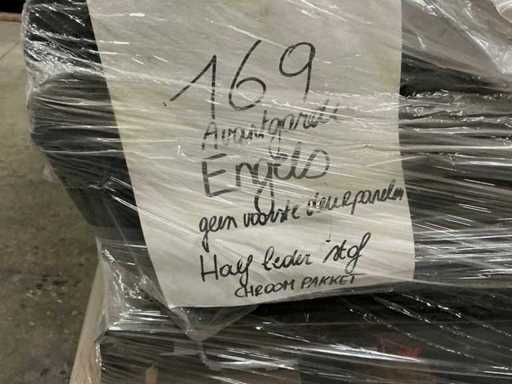 169
Avantgarde
Engels
geen voorste deurpanelen
Half leder stof
CHROOM PAKKET